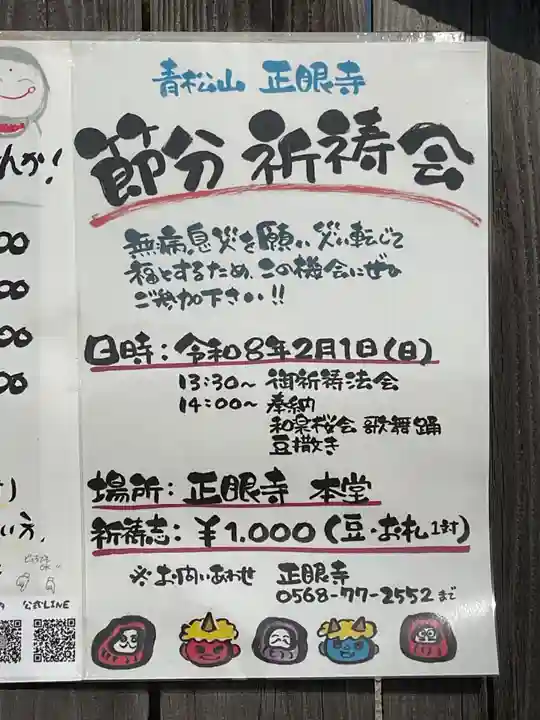 青松山 正眼寺
節分 祈祷会
無病息災を願い災い転じて
福とするため、この機会にぜひ
ご参加下さい!!
日時:令和8年2月1日(日)
13:30~ 御祈祷法会
14:00~ 奉納
和泉桜会 歌舞踊
豆撒き
場所:正眼寺 本堂
祈祷志:¥1.000(豆・お札1対)
※お問いあわせ 正眼寺
0568-77-2552まで
んか!
00
00
00
00
い方、
公式LINE